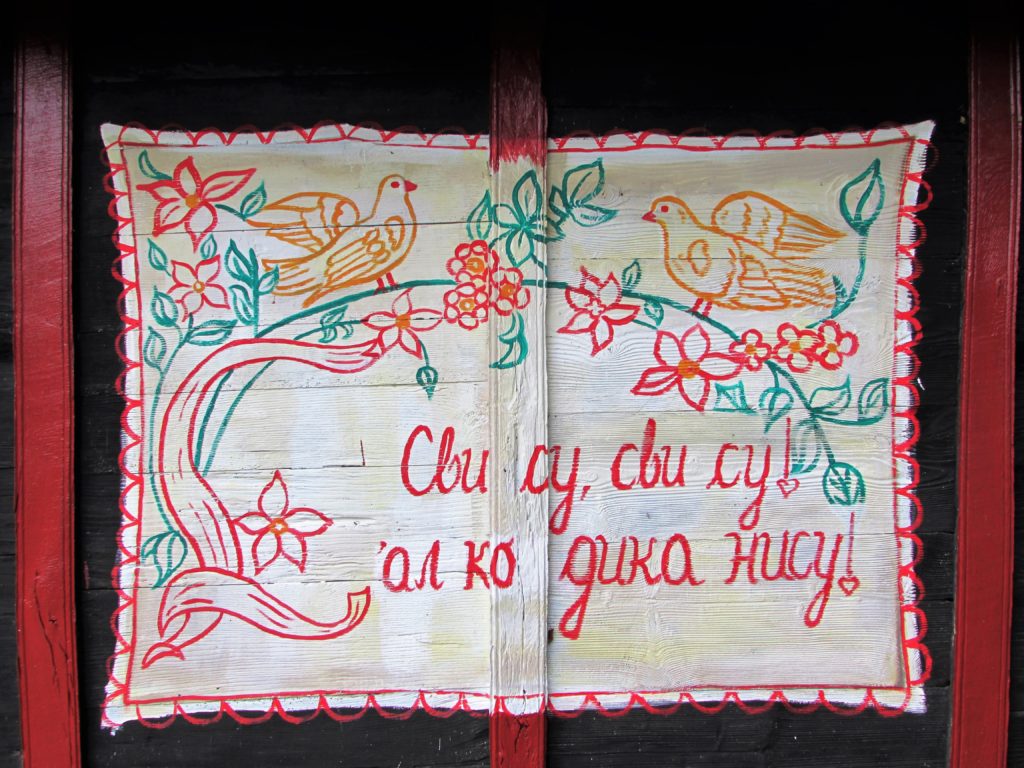 Сви су, сви су!
'ал ко дика нису!